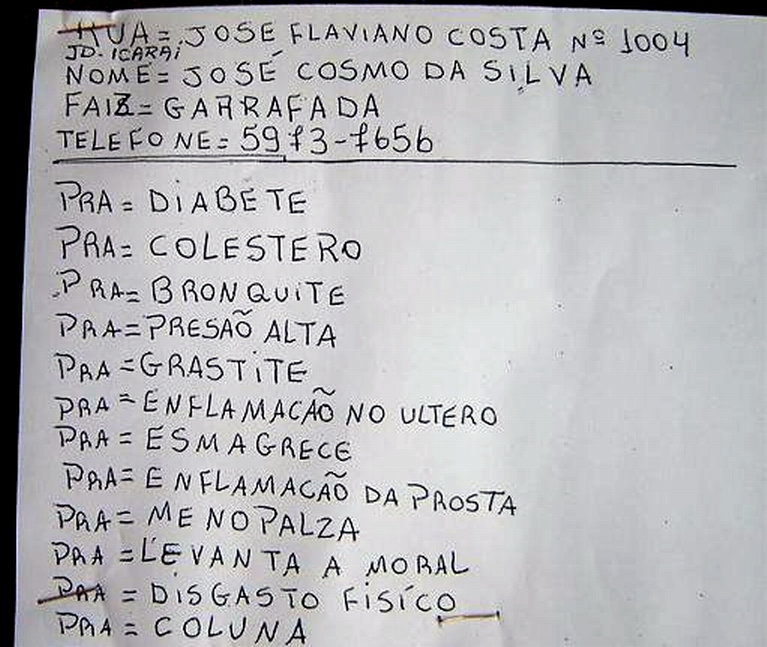 RUA = JOSE FLAVIANO COSTA Nº 1004
JD. ICARAI
NOME = JOSÉ COSMO DA SILVA
FAIZ = GARRAFADA
TELEFONE = 5973-7656
PRA = DIABETE
PRA = COLESTERO
PRA = BRONQUITE
PRA = PRESÃO ALTA
PRA = GRASTITE
PRA = ENFLAMACÃO NO ULTERO
PRA = ESMAGRECE
PRA = ENFLAMACÃO DA PROSTA
PRA = MENOPALZA
PRA = LEVANTA A MORAL
PRA = DISGASTO FISICO
PRA = COLUNA